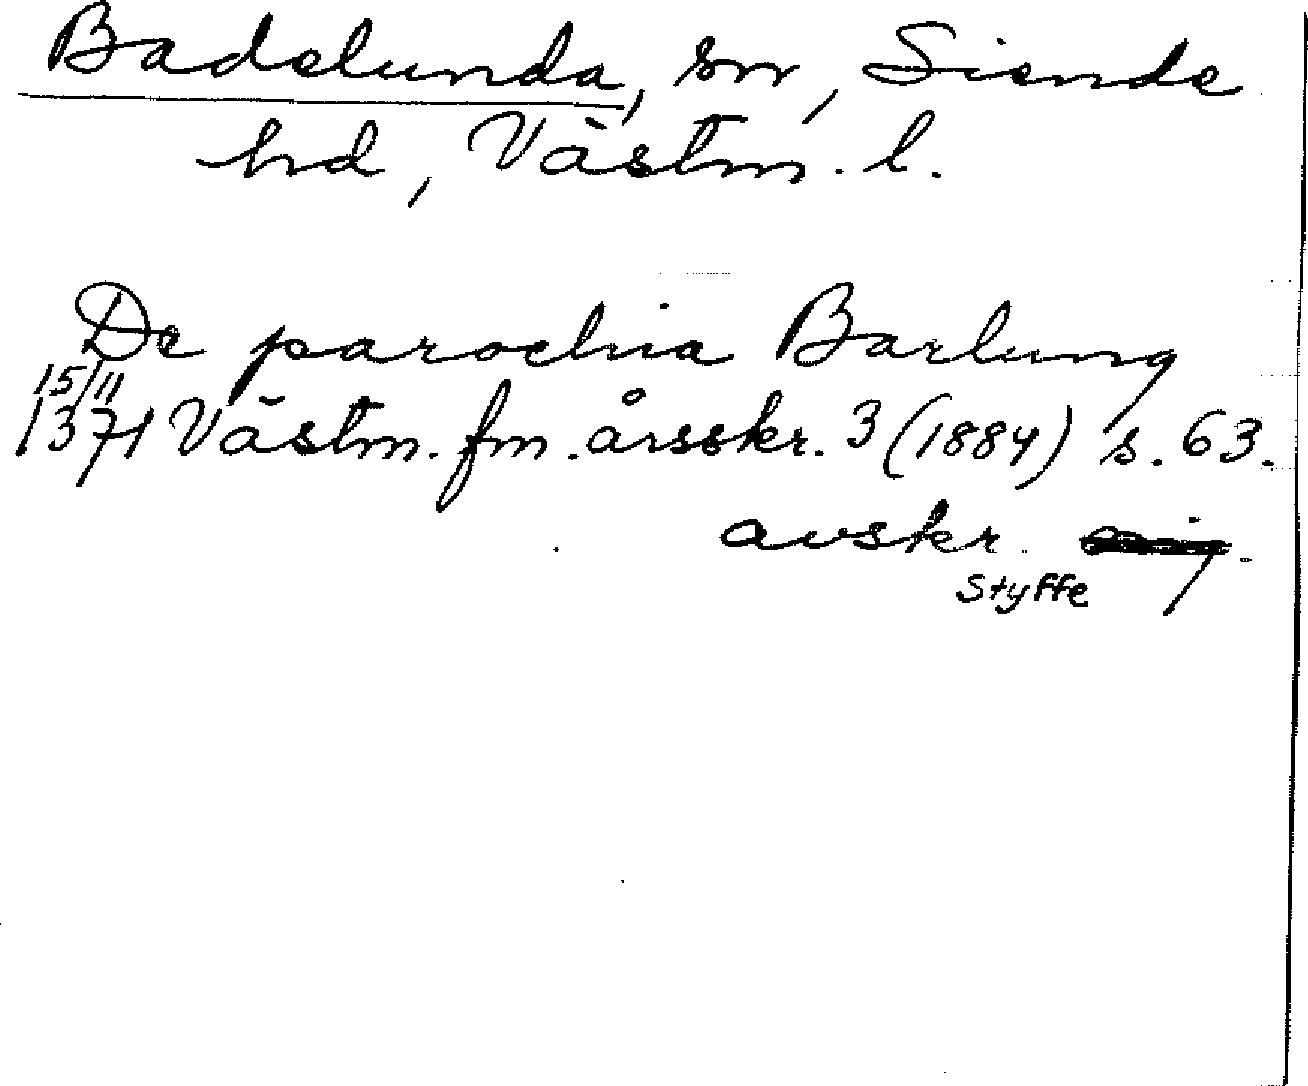 Badelunda, sn, Siende
hd, Västm. l.
De parochia Barlung
15/11
1371 Västm. fm. årsskr. 3 (1884) s. 63.
avskr.
Styffe